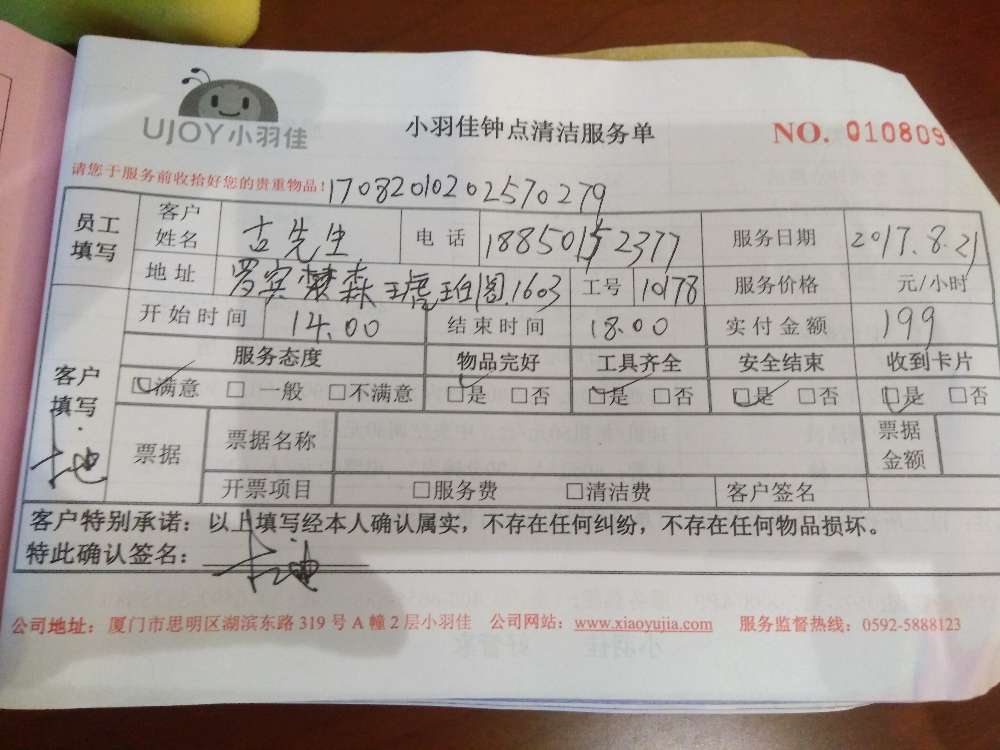 UJOY小羽佳
小羽佳钟点清洁服务单
NO. 010809
请您于服务前收拾好您的贵重物品!
17082010202570279
员工填写 客户姓名 古先生 电话 18850152377 服务日期 2017.8.21
地址 罗宾森 琥珀阁1603 工号 10178 服务价格 元/小时
开始时间 14.00 结束时间 18.00 实付金额 199
客户填写 服务态度 物品完好 工具齐全 安全结束 收到卡片
□满意 □一般 □不满意 □是 □否 □是 □否 □是 □否 □是 □否
票据 票据名称 票据金额
开票项目 □服务费 □清洁费 客户签名
客户特别承诺：以上填写经本人确认属实，不存在任何纠纷，不存在任何物品损坏。
特此确认签名：
公司地址：厦门市思明区湖滨东路 319 号 A 幢 2 层小羽佳 公司网站：www.xiaoyujia.com 服务监督热线：0592-5888123